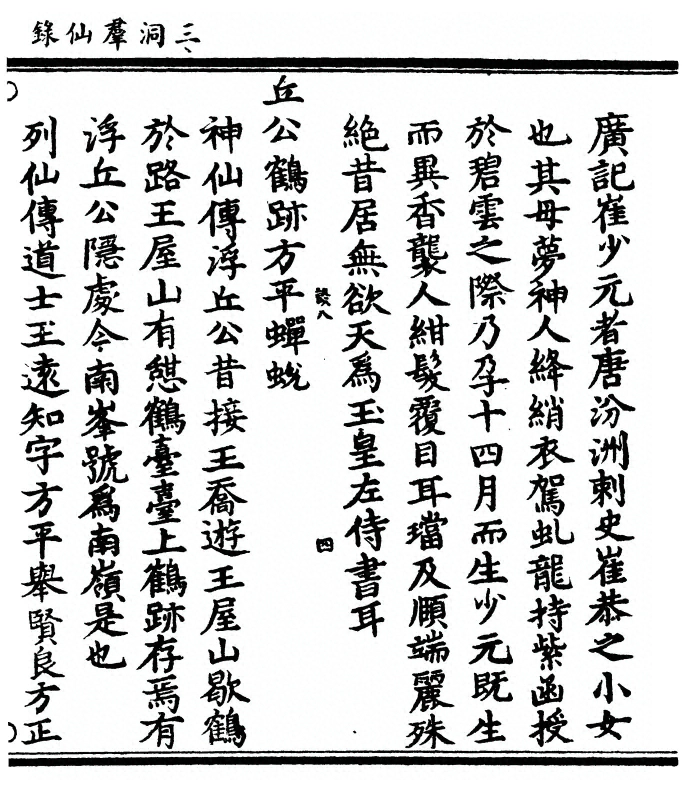 三洞羣仙錄
廣記崔少元者唐汾洲刺史崔恭之小女
也其母夢神人絳綃衣駕虬龍持紫函授
於碧雲之際乃孕十四月而生少元既生
而異香襲人紺髮覆目耳璫及頤端麗殊
絶昔居無欲天爲玉皇左侍書耳
設八
四
丘公鶴跡方平蟬蛻
神仙傳浮丘公昔接王喬遊王屋山歇鶴
於路王屋山有憇鶴臺臺上鶴跡存焉有
浮丘公隱處今南峯號爲南嶺是也
列仙傳道士王遠知字方平舉賢良方正